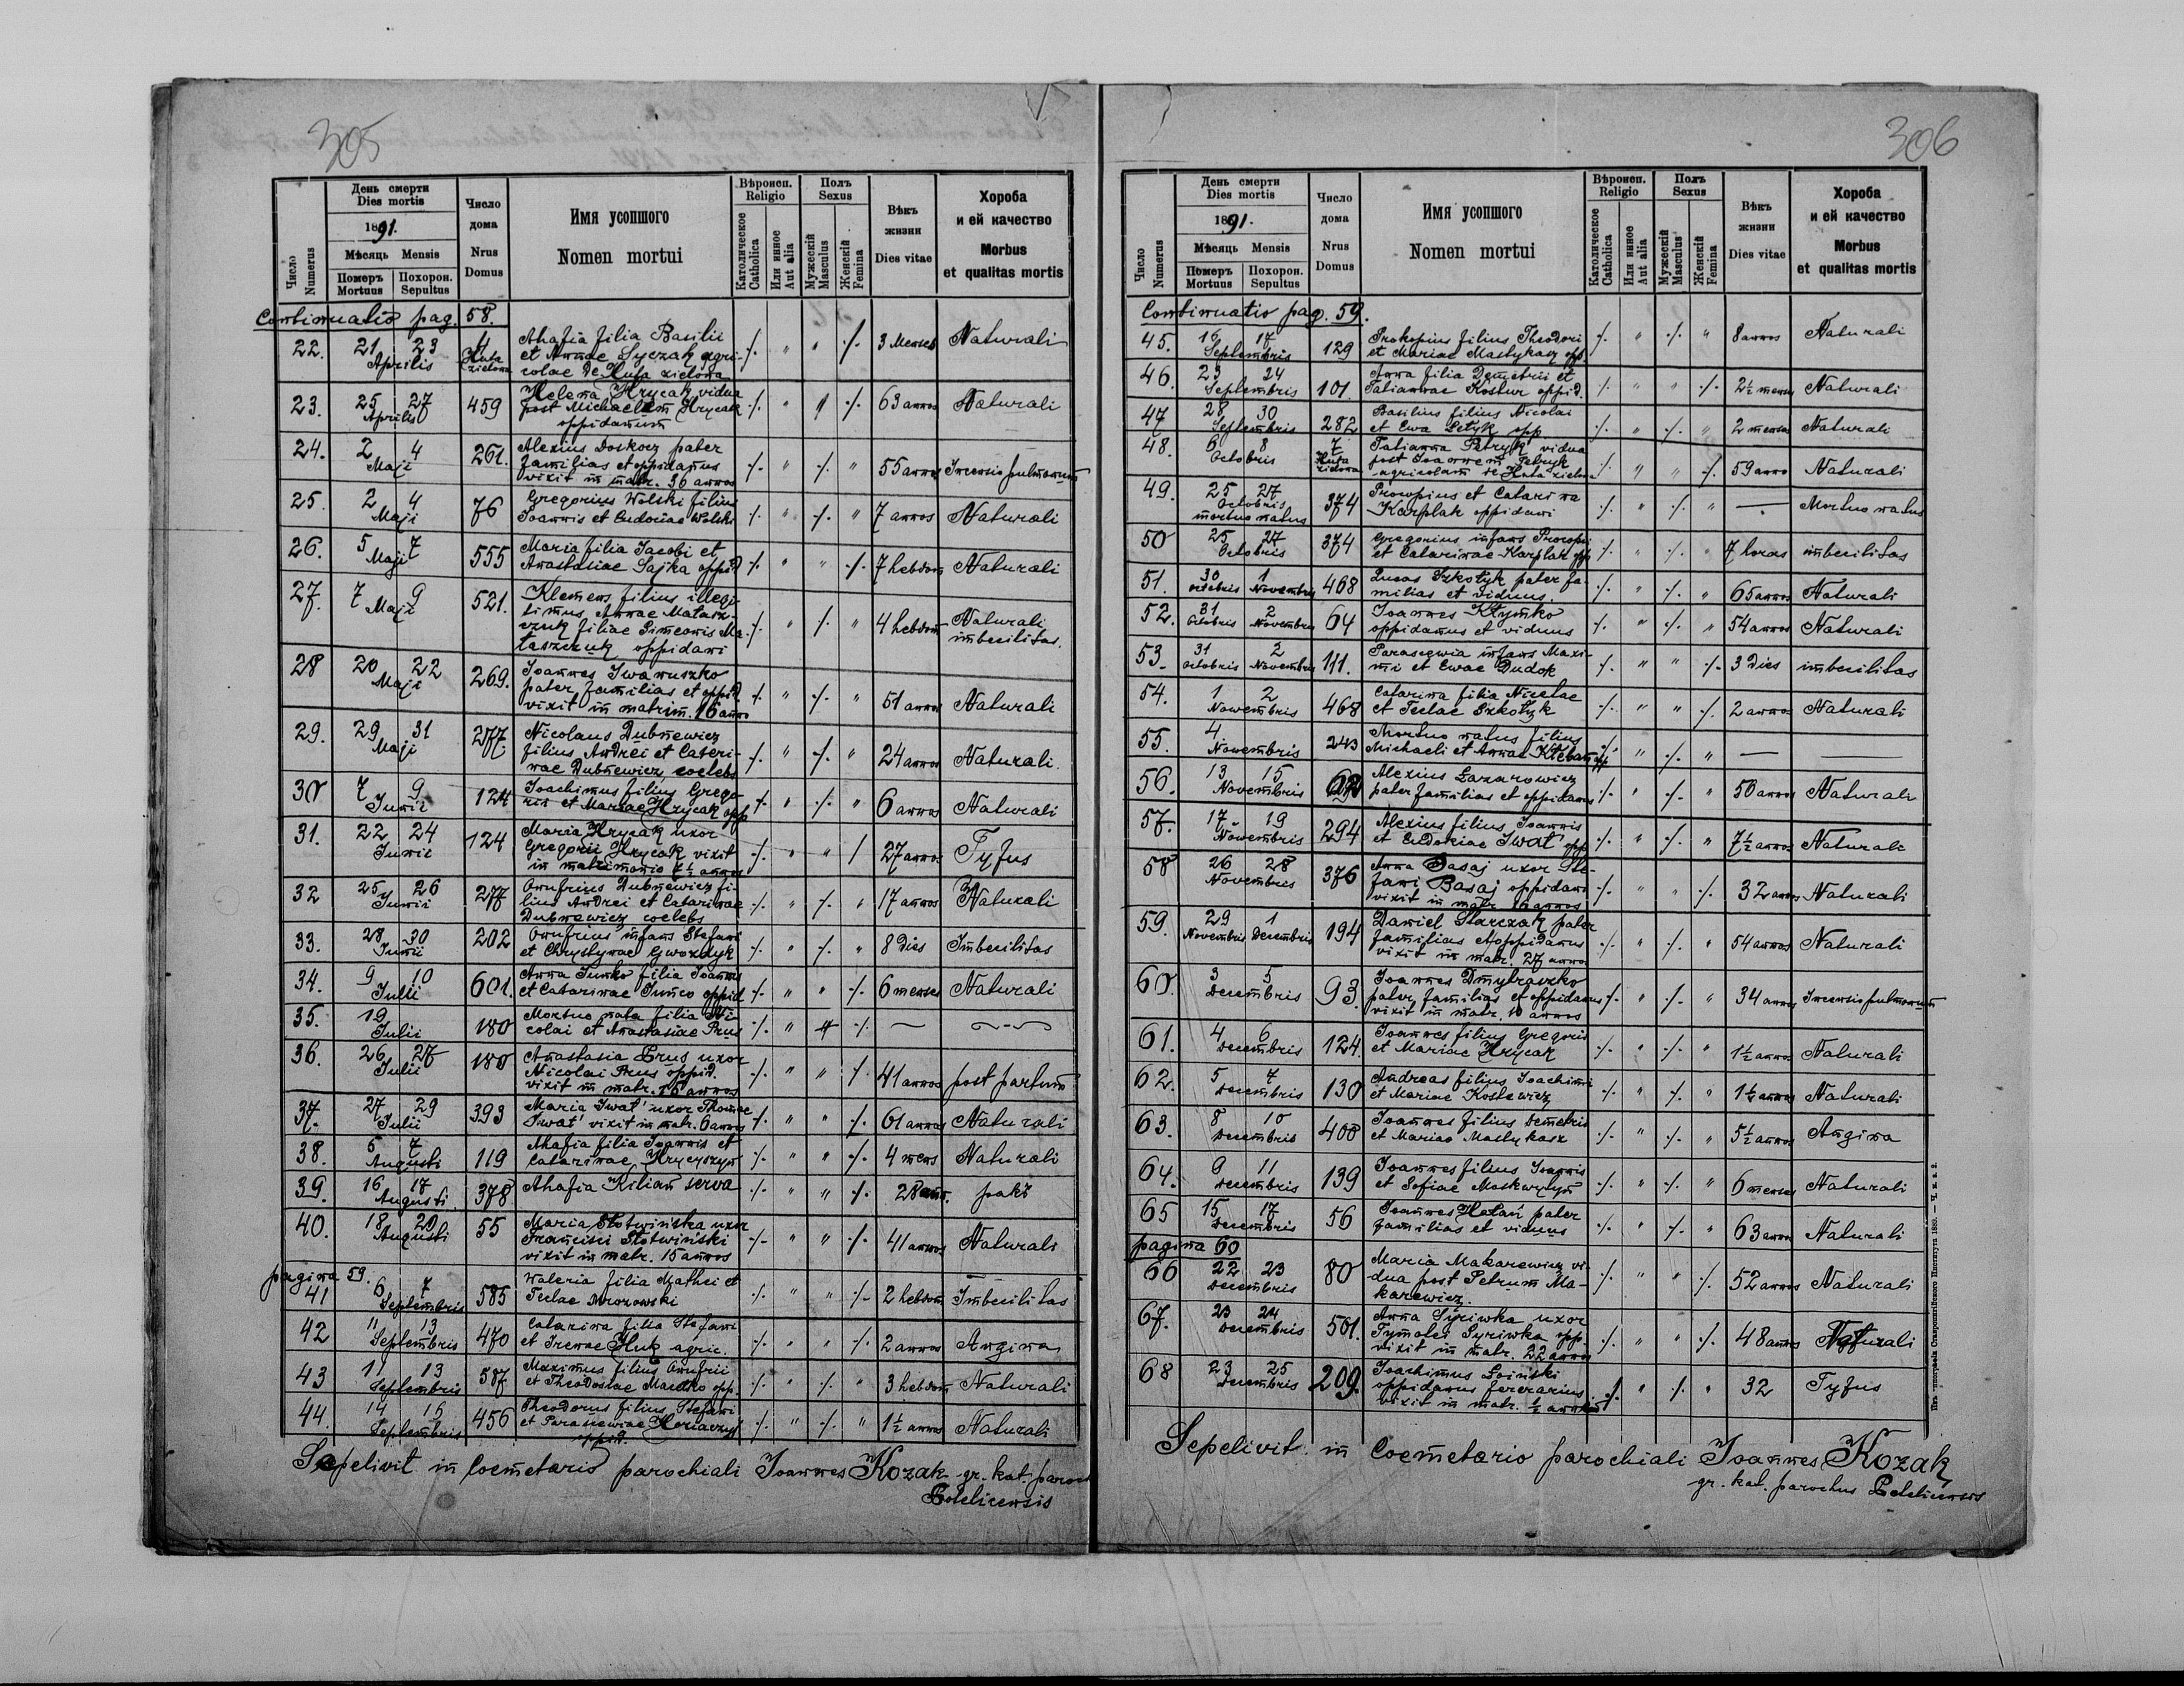 305
День смерти
Dies mortis
1891.
Мѣсяць Mensis
Померъ Mortuus
Похорон. Sepultus
Число Numerus
Число дома
Nrus Domus
Имя усопшого
Nomen mortui
Вѣроисп. Religio
Католическое Catholica
Или инное Aut alia
Полъ Sexus
Мужескій Masculus
Женскій Femina
Вѣкъ жизни
Dies vitae
Хороба и ей качество
Morbus et qualitas mortis
Continuatio pag. 58.
22. 21 23 Aprilis Huta zielona
Ahafia filia Basilii
et Annae Syczak agri-
colae de Huta zielona
3 Menses Naturali
23. 25 27 Aprilis 459
Helena Hrycak vidua
post Michaelem Hrycak
oppidanum
63 annos Naturali
24. 2 4 Maji 261.
Alexius Doskocz pater
familias et oppidanus
vixit in matr. 36 annos
55 annos Incensio pulmonum
25. 2 4 Maji 76
Gregorius Wolski filius
Joannis et Eudociae Wolski
7 annos Naturali
26. 5 7 Maji 555
Maria filia Jacobi et
Anastasiae Sajka oppid
7 hebdom Naturali
27. 7 9 Maji 521.
Klemens filius illegi-
timus, Annae Matasz-
czuk filiae Simeonis Ma-
taszczuk oppidani
4 hebdom Naturali imbecilitas.
28 20 22 Maji 269.
Joannes Iwanuszko
pater familias et oppid.
vixit in matrim. 16 annos
51 annos Naturali
29. 29 31 Maji 277
Nicolaus Dubnewicz
filius Andrei et Catari-
nae Dubnewicz, coelebs
24 annos Naturali.
30 7 9 Junii 124
Joachimus filius Grego-
rii et Mariae Hrycak opp
6 annos Naturali
31. 22 24 Junii 124
Maria Hrycak uxor
Gregorii Hrycak vixit
in matrimonio 7½ annos
27 annos Tyfus
32 25 26 Junii 277
Onufrius Dubnewicz fi-
lius Andrei et Catarinae
Dubnewicz coelebs
17 annos Naturali
33. 28 30 Junii 202
Onufrius infans Stefani
et Chrystynae Gwozdyk
8 dies Imbecilitas
34. 9 10 Julii 601.
Anna Junko filia Joannis
et Catarinae Junco oppid
6 menses Naturali
35. 19 Julii 180
Mortuo nata filia Ni-
colai et Anastasiae Prus
36. 26 27 Julii 180
Anastasia Prus uxor
Nicolai Prus oppid.
vixit in matr. 15 annos
41 annos post partum
37. 27 29 Julii 393
Maria Iwat' uxor Thomae
Iwat' vixit in matr. 6 annos
61 annos Naturali
38. 5 7 Augusti 119
Ahafia filia Joannis et
Catarinae Hrycyszyn
4 mens Naturali
39. 16 17 Augusti 378
Ahafia Kilian serva
28 ann.
40. 18 20 Augusti 55
Maria Słotwińska uxor
Francisci Słotwiński
vixit in matr. 15 annos
41 annos Naturali
pagina 59.
41 6 7 Septembris 585
Waleria filia Mathei et
Teclae Mrozowski
2 hebdom Imbecilitas
42 11 13 Septembris 470
Catarina filia Stefani
et Irenae Huk agric.
2 annos Angina
43 11 13 Septembris 587
Maximus filius Onufrii
et Theodosiae opp.
3 hebdom Naturali
44. 14 15 Septembris 456
Theodorus filius Stefani
et Parascewiae
oppid.
1½ annos Naturali
Sepelivit in Coemetario parochiali Joannes Kozak gr. kat. paroch
Potelicensis
306
День смерти
Dies mortis
1891.
Мѣсяць Mensis
Померъ Mortuus
Похорон. Sepultus
Число Numerus
Число дома
Nrus Domus
Имя усопшого
Nomen mortui
Вѣроисп. Religio
Католическое Catholica
Или инное Aut alia
Полъ Sexus
Мужескій Masculus
Женскій Femina
Вѣкъ жизни
Dies vitae
Хороба и ей качество
Morbus et qualitas mortis
Continuatio pag. 59.
45. 16 17 Septembris 129
Prokopius filius Theodori
et Mariae Mastykasz opp.
8 annos Naturali
46. 23 24 Septembris 101.
Anna filia Demetrii et
Tatiannae Kostur oppid.
2½ menses Naturali
47 28 30 Septembris 282
Basilius filius Nicolai
et Ewa Letyk opp
2 menses Naturali
48. 6 8 Octobris 7 Huta zielona
Tatianna Petryk vidua
post Joannem Petryk
agricolam de Huta zielona
59 anno Naturali
49. 25 27 Octobris mortuo natus 374
Procopius et Catarina
Karplak oppidani
Mortuo natus
50 25 27 Octobris 374
Gregorius infans Procopii
et Catarinae Karplak opp
7 horas imbecilitas
51. 30 Octobris 1 Novembris 468
Lucas Szkotyk pater fa-
milias et viduus.
65 annos Naturali
52. 31 Octobris 2 Novembris 64
Joannes Kłymko
oppidanus et viduus
54 annos Naturali
53. 31 Octobris 2 Novembris 111.
Parascewia infans Maxi-
mi et Ewae Dudok
3 Dies imbecilitas
54. 1 2 Novembris 468
Catarina filia Nicetae
et Teclae Szkotyk
2 annos Naturali
55. 4 Novembris 243
Mortuo natus filius
Michaeli et Annae Kłeban opp
56. 13 15 Novembris 62
Alexius Lazarowicz
pater familias et oppidanus
50 annos Naturali
57. 17 19 Novembris 294
Alexius filius Joannis
et Eudokiae Iwat' opp
7½ annos Naturali
58 26 28 Novembris 376
Anna Basaj uxor Ste-
fani Basaj oppidani
vixit in matr. 10 annos
32 annos Naturali
59. 29 Novembris 1 Decembris 194
Daniel Starczak pater
familias et oppidanus
vixit in matr. 27 annos
54 annos Naturali
60. 3 5 Decembris 93.
Joannes Dmytraszko
pater familias et oppidanus
vixit in matr. 10 annos
34 annos Incensio pulmonum
61. 4 6 Decembris 124.
Joannes filius Gregorii
et Mariae Hrycak
1½ annos Naturali
62. 5 7 Decembris 130
Andreas filius Joachimi
et Mariae Kostewicz
1½ annos Naturali
63. 8 10 Decembris 400
Joannes filius Demetrii
et Mariae Mastykasz
5½ annos Angina
64. 9 11 Decembris 139
Joannes filius Joannis
et Sofiae Moskwytyn
6 menses Naturali
65 15 17 Decembris 56
Joannes Hatan pater
familias et viduus
63 annos Naturali
pagina 60
66 22 23 Decembris 80
Maria Makarewicz vi-
dua post Petrum Ma-
karewicz.
52 annos Naturali
67. 23 24 Decembris 501.
Anna Syriwka uxor
Tymotei Syriwka opp.
vixit in matr. 22 annos
48 annos Naturali
68 23 25 Decembris 209.
Joachimus Łoiński
oppidanus
vixit in matr. ½
32 Tyfus
Sepelivit in Coemetario parochiali Joannes Kozak
gr. kat. parochus Potelicensis